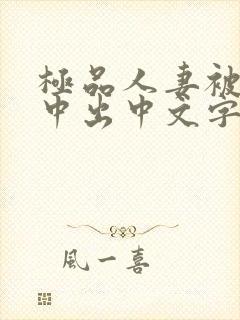 極品人妻被
中出中文字
風一喜